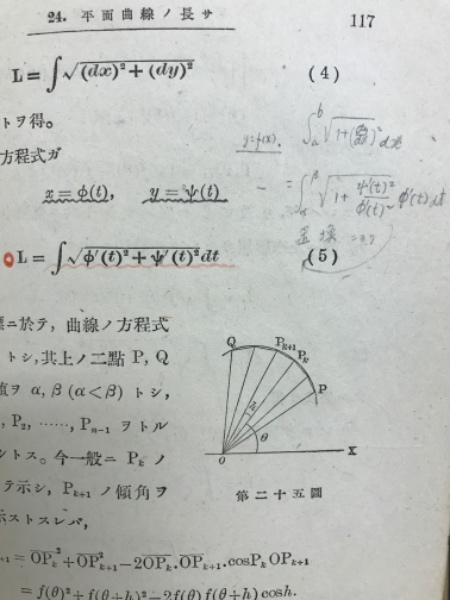 24. 平面曲線ノ長サ
117
L = ∫√(dx)² + (dy)²
(4)
トヲ得。
方程式ガ
y=f(x).
∫ₐᵇ √1+(dy/dx)² dx
x = φ(t), y = ψ(t)
= ∫ √1+ ψ'(t)²/φ'(t)² φ'(t) dt
置換
L = ∫√φ'(t)² + ψ'(t)² dt
(5)
ニ於テ, 曲線ノ方程式
トシ, 其上ノ二點 P, Q
値ヲ α, β (α<β) トシ,
, P₂, ……, Pₙ₋₁ ヲトル
ントス。今一般ニ Pₖ ノ
テ示シ, Pₖ₊₁ ノ傾角ヲ
示ストスレバ,
Q
Pₖ₊₁
Pₖ
P
h
θ
O
X
第二十五圖
₊₁ = OPₖ² + OP²ₖ₊₁ − 2OPₖ.OPₖ₊₁.cosPₖOPₖ₊₁
= f(θ)² + f(θ+h)² − 2f(θ) f(θ+h) cosh.